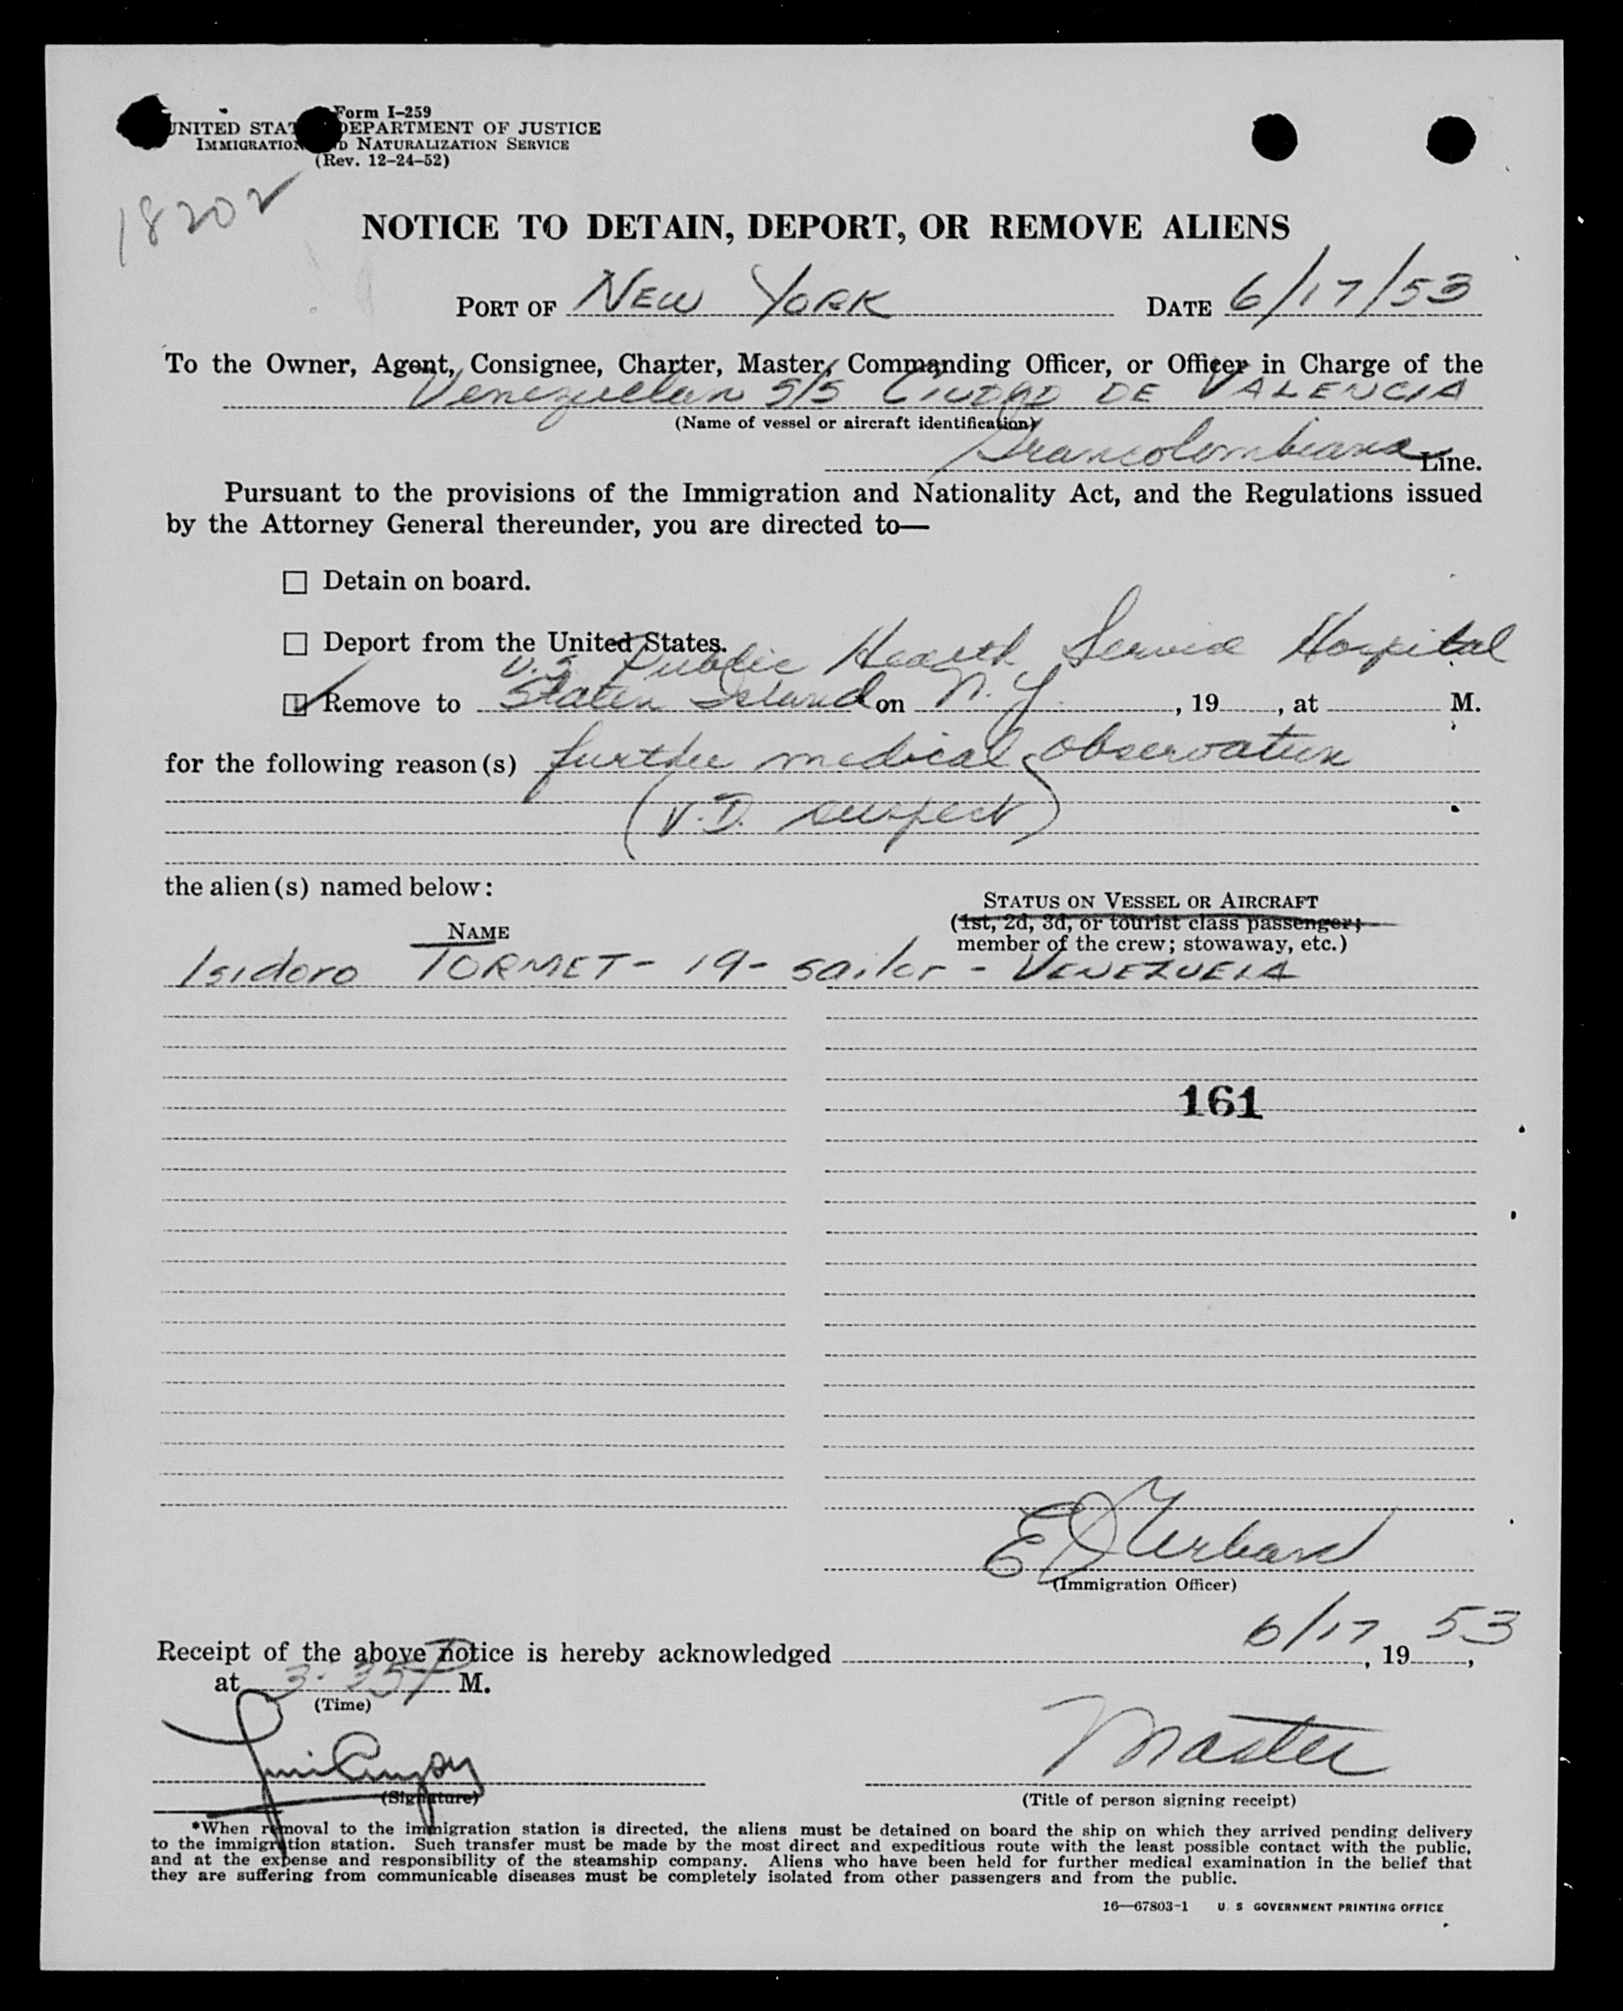 Form I-259
UNITED STATES DEPARTMENT OF JUSTICE
IMMIGRATION AND NATURALIZATION SERVICE
(Rev. 12-24-52)
18202
NOTICE TO DETAIN, DEPORT, OR REMOVE ALIENS
PORT OF NEW YORK DATE 6/17/53
To the Owner, Agent, Consignee, Charter, Master, Commanding Officer, or Officer in Charge of the
Venezuelan S/S CIUDAD DE VALENCIA
(Name of vessel or aircraft identification)
Grancolombiana Line.
Pursuant to the provisions of the Immigration and Nationality Act, and the Regulations issued
by the Attorney General thereunder, you are directed to—
☐ Detain on board.
☐ Deport from the United States.
U.S. Public Health Service Hospital
☑ Remove to Staten Island on N.Y. , 19 , at M.
for the following reason(s) further medical observation
(V.D. suspect)
the alien(s) named below:
STATUS ON VESSEL OR AIRCRAFT
(1st, 2d, 3d, or tourist class passenger;
NAME
member of the crew; stowaway, etc.)
Isidoro TORMET - 19 - sailor - VENEZUELA
161
E D Urband
(Immigration Officer)
Receipt of the above notice is hereby acknowledged 6/17, 19 53,
at 3:35 P M.
(Time)
Master
(Signature)
(Title of person signing receipt)
*When removal to the immigration station is directed, the aliens must be detained on board the ship on which they arrived pending delivery
to the immigration station. Such transfer must be made by the most direct and expeditious route with the least possible contact with the public,
and at the expense and responsibility of the steamship company. Aliens who have been held for further medical examination in the belief that
they are suffering from communicable diseases must be completely isolated from other passengers and from the public.
16—67803-1 U. S GOVERNMENT PRINTING OFFICE